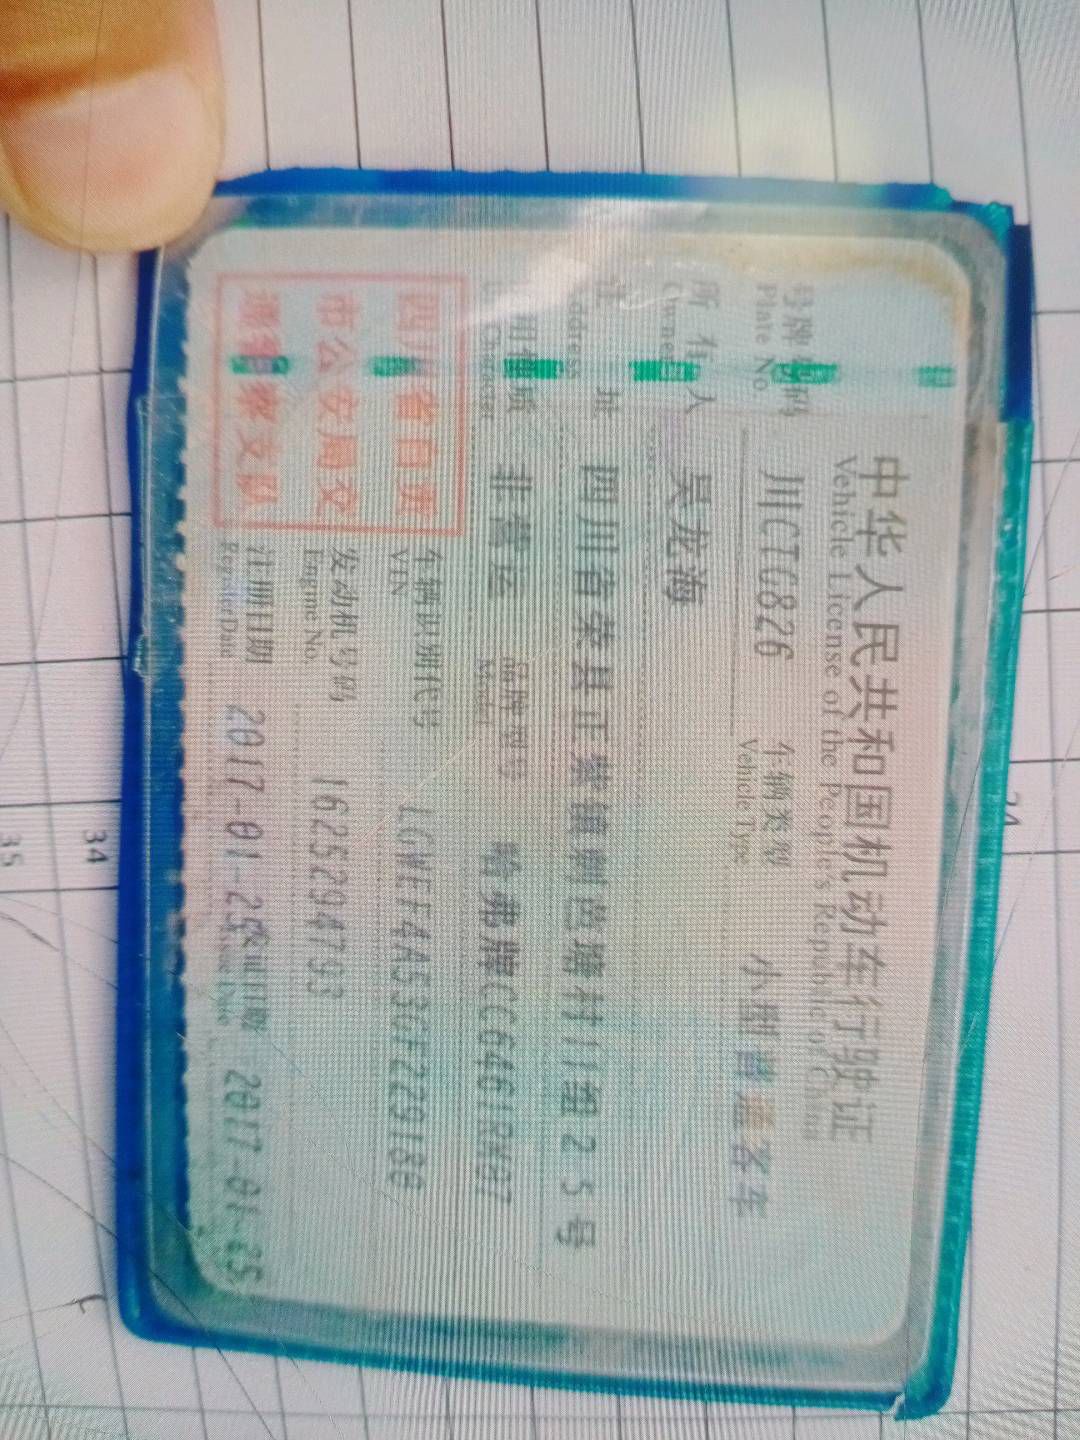 中华人民共和国机动车行驶证
Vehicle License of the People's Republic of China
号牌号码 川CTG826 车辆类型 小型普通客车
Plate No. Vehicle Type
所有人 吴龙海
Owner
住址 四川省荣县正紫镇
村11组25号
Address
使用性质 非营运 品牌型号 哈弗牌CC6461RM07
Use Character Model
四川省自贡
市公安局交
通警察支队
车辆识别代号 LGWEF4A53GF229180
VIN
发动机号码 1625294793
Engine No.
注册日期 2017-01-25 发证日期 2017-01-25
Register Date Issue Date
34
35